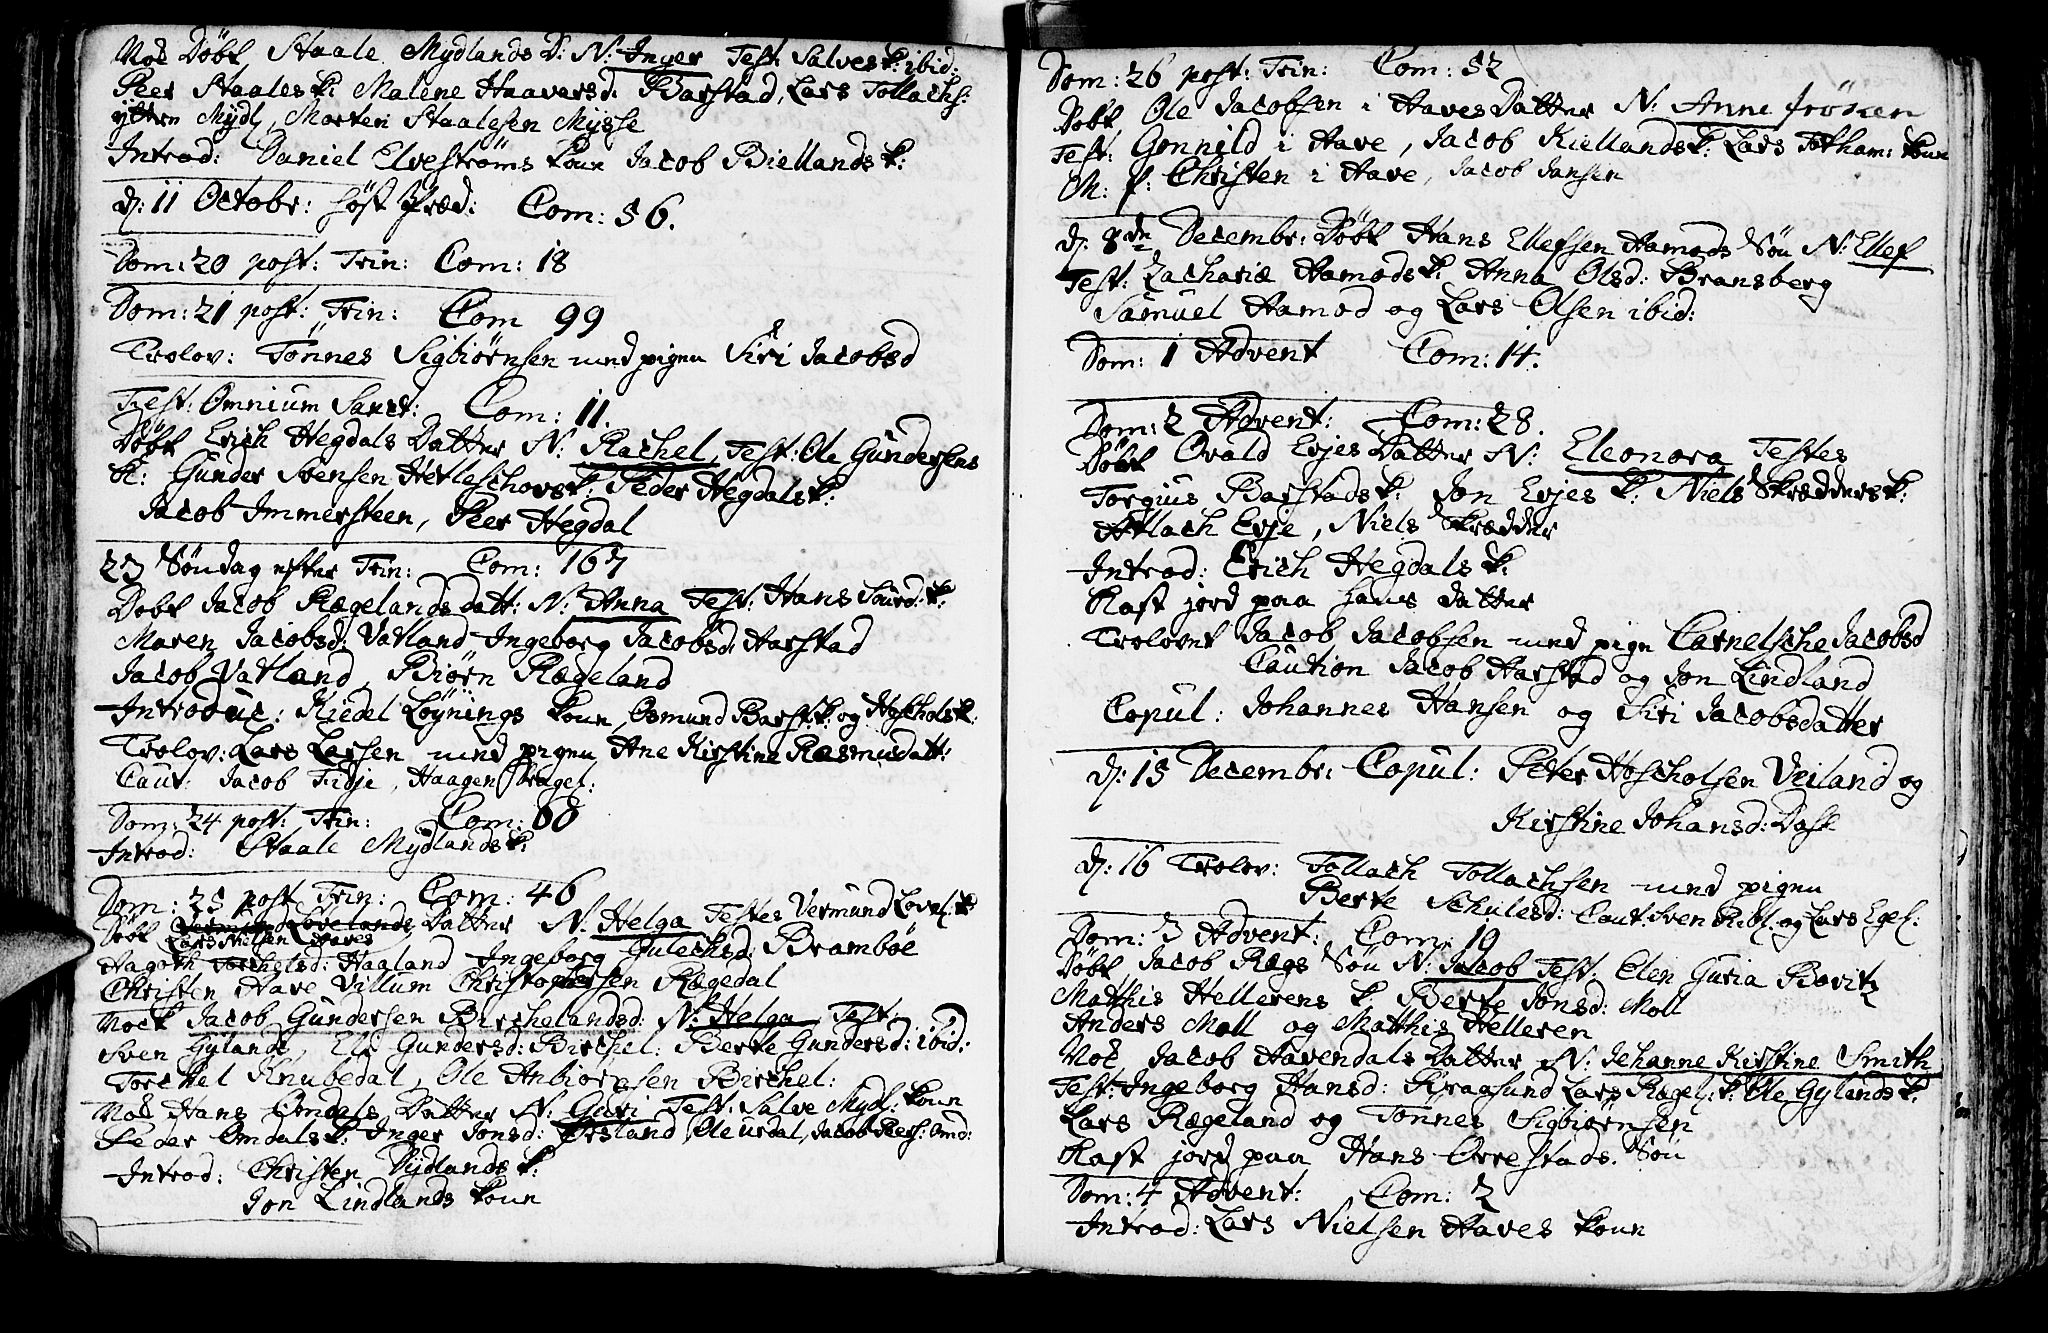 Noch Döbt Staale Mydlands D: N: Inger Test: Salves K: ibid:
Peer Staales K: Malene Haavarsd: Barstad, Lars Tollachs:
ytten Mydl, Morten Staalesen Mysse
Introd: Daniel Elvestrøms Kone Jacob Biellands K:
d: 11 Octobr: Höst Præd: Com: 56.
Dom: 20 post: Trin: Com: 18
Dom: 21 post: Trin: Com 99
Trolov: Tönnes Sigbiørnsen med pigen Siri Jacobsd
Fest: Omnium Sanct: Com: 11.
Döbt Erich Hegdals Datter N: Rachel, Test: Ole Gundersens
K: Gunder Svensen Hetleschovs K: Peder Hegdals K:
Jacob Immersteen, Peer Hegdal
23 Søndag efter Trin: Com: 167
Döbt Jacob Rægelands datt: N: Anna Test: Hans Sourd: K:
Maren Jacobsd: Vatland Ingeborg Jacobsd: Harstad
Jacob Vatland, Biørn Rægeland
Introduc: Kiedel Löynings Kone, Osmund Barst: K: og Hoschols K:
Trolov: Lars Larsen med pigen Ane Kirstine Rasmusdatt:
Caut: Jacob Fidje, Haagen Ragel:
Dom: 24 post: Trin: Com: 60
Introd: Staale Mydlands K:
Dom: 25 post Trin: Com: 46
Döbt Vermund Lovelands Datter N: Helga Testes Vermund Lovel: K
Lars Nielsen Haves
Dagoth Torchelsd: Haaland Ingeborg Gulechsd: Bramböe
Christen Have Villum Christophersen Rægedal
Noch Jacob Gundersen Birchelandsd: N: Helga Test:
Sven Gylands, Els Gundersd: Birchel: Berte Gundersd: ibid:
Torchel Knubedal, Ole Anbiørnsen Birchel:
Noch Hans Omdals Datter N: Guri Test: Salve Mydl: Kone
Peder Omdals K: Inger Jonsd: Ørsland, Ole Urdal, Jacob Peers: Omd:
Introd: Christen Nydlands K:
Jon Lindlands Kone
Dom: 26 post: Trin: Com: 52
Döbt Ole Jacobsen i Haves Datter N: Anne fröken
Test: Gonnild i Have, Jacob Kiellands K: Lars Totham: Kone
M: f: Christen i Have, Jacob Jansen
d: 8de Decembr: Döbt Hans Ellefsen Hamods Søn N: Ellef
Test: Zachariæ Hamods K: Anna Olsd: Bransberg
Samuel Hamod og Lars Olsen ibid:
Dom: 1 Advent Com: 14.
Dom: 2 Advent: Com: 28.
Döbt Ovald Evjes Datter N: Eleonora Testes
Torgius Barstads K: Jon Evjes K: Niels Skrædders K:
Atlach Evje, Niels Skrædder
Introd: Erich Hegdals K:
Kast jord paa hans datter
Trolovet Jacob Jacobsen med pign Carnelsche Jacobsd
Caution Jacob Harstad og Jon Lindland
Copul: Johannes Hansen og Siri Jacobsdatter
d: 15 Decembr: Copul: Peter Hoscholsen Veiland og
Kirstine Johansd: Dask
d: 16 Trolov: Tollach Tollachsen med pigen
Berte Schulesd: Caut: Sven Ribl: og Lars Egel:
Dom: 3 Advent: Com: 19
Döbt Jacob Rægs Søn N: Jacob Test: Elen Guria Boritz
Matthis Hellerens K: Berte Jonsd: Moll
Anders Moll og Matthis Helleren
Noch Jacob Havendals Datter N: Jehanne Kirstine Smith
Test: Ingeborg Hansd: Kragsund Lars Rægel: K: Ole Gylands K:
Lars Rægeland og Tonnes Sigbiørnsen
Kast jord paa Hans Orrestads Søn
Dom: 4 Advent: Com: 2
Introd: Lars Nielsen Haves Kone